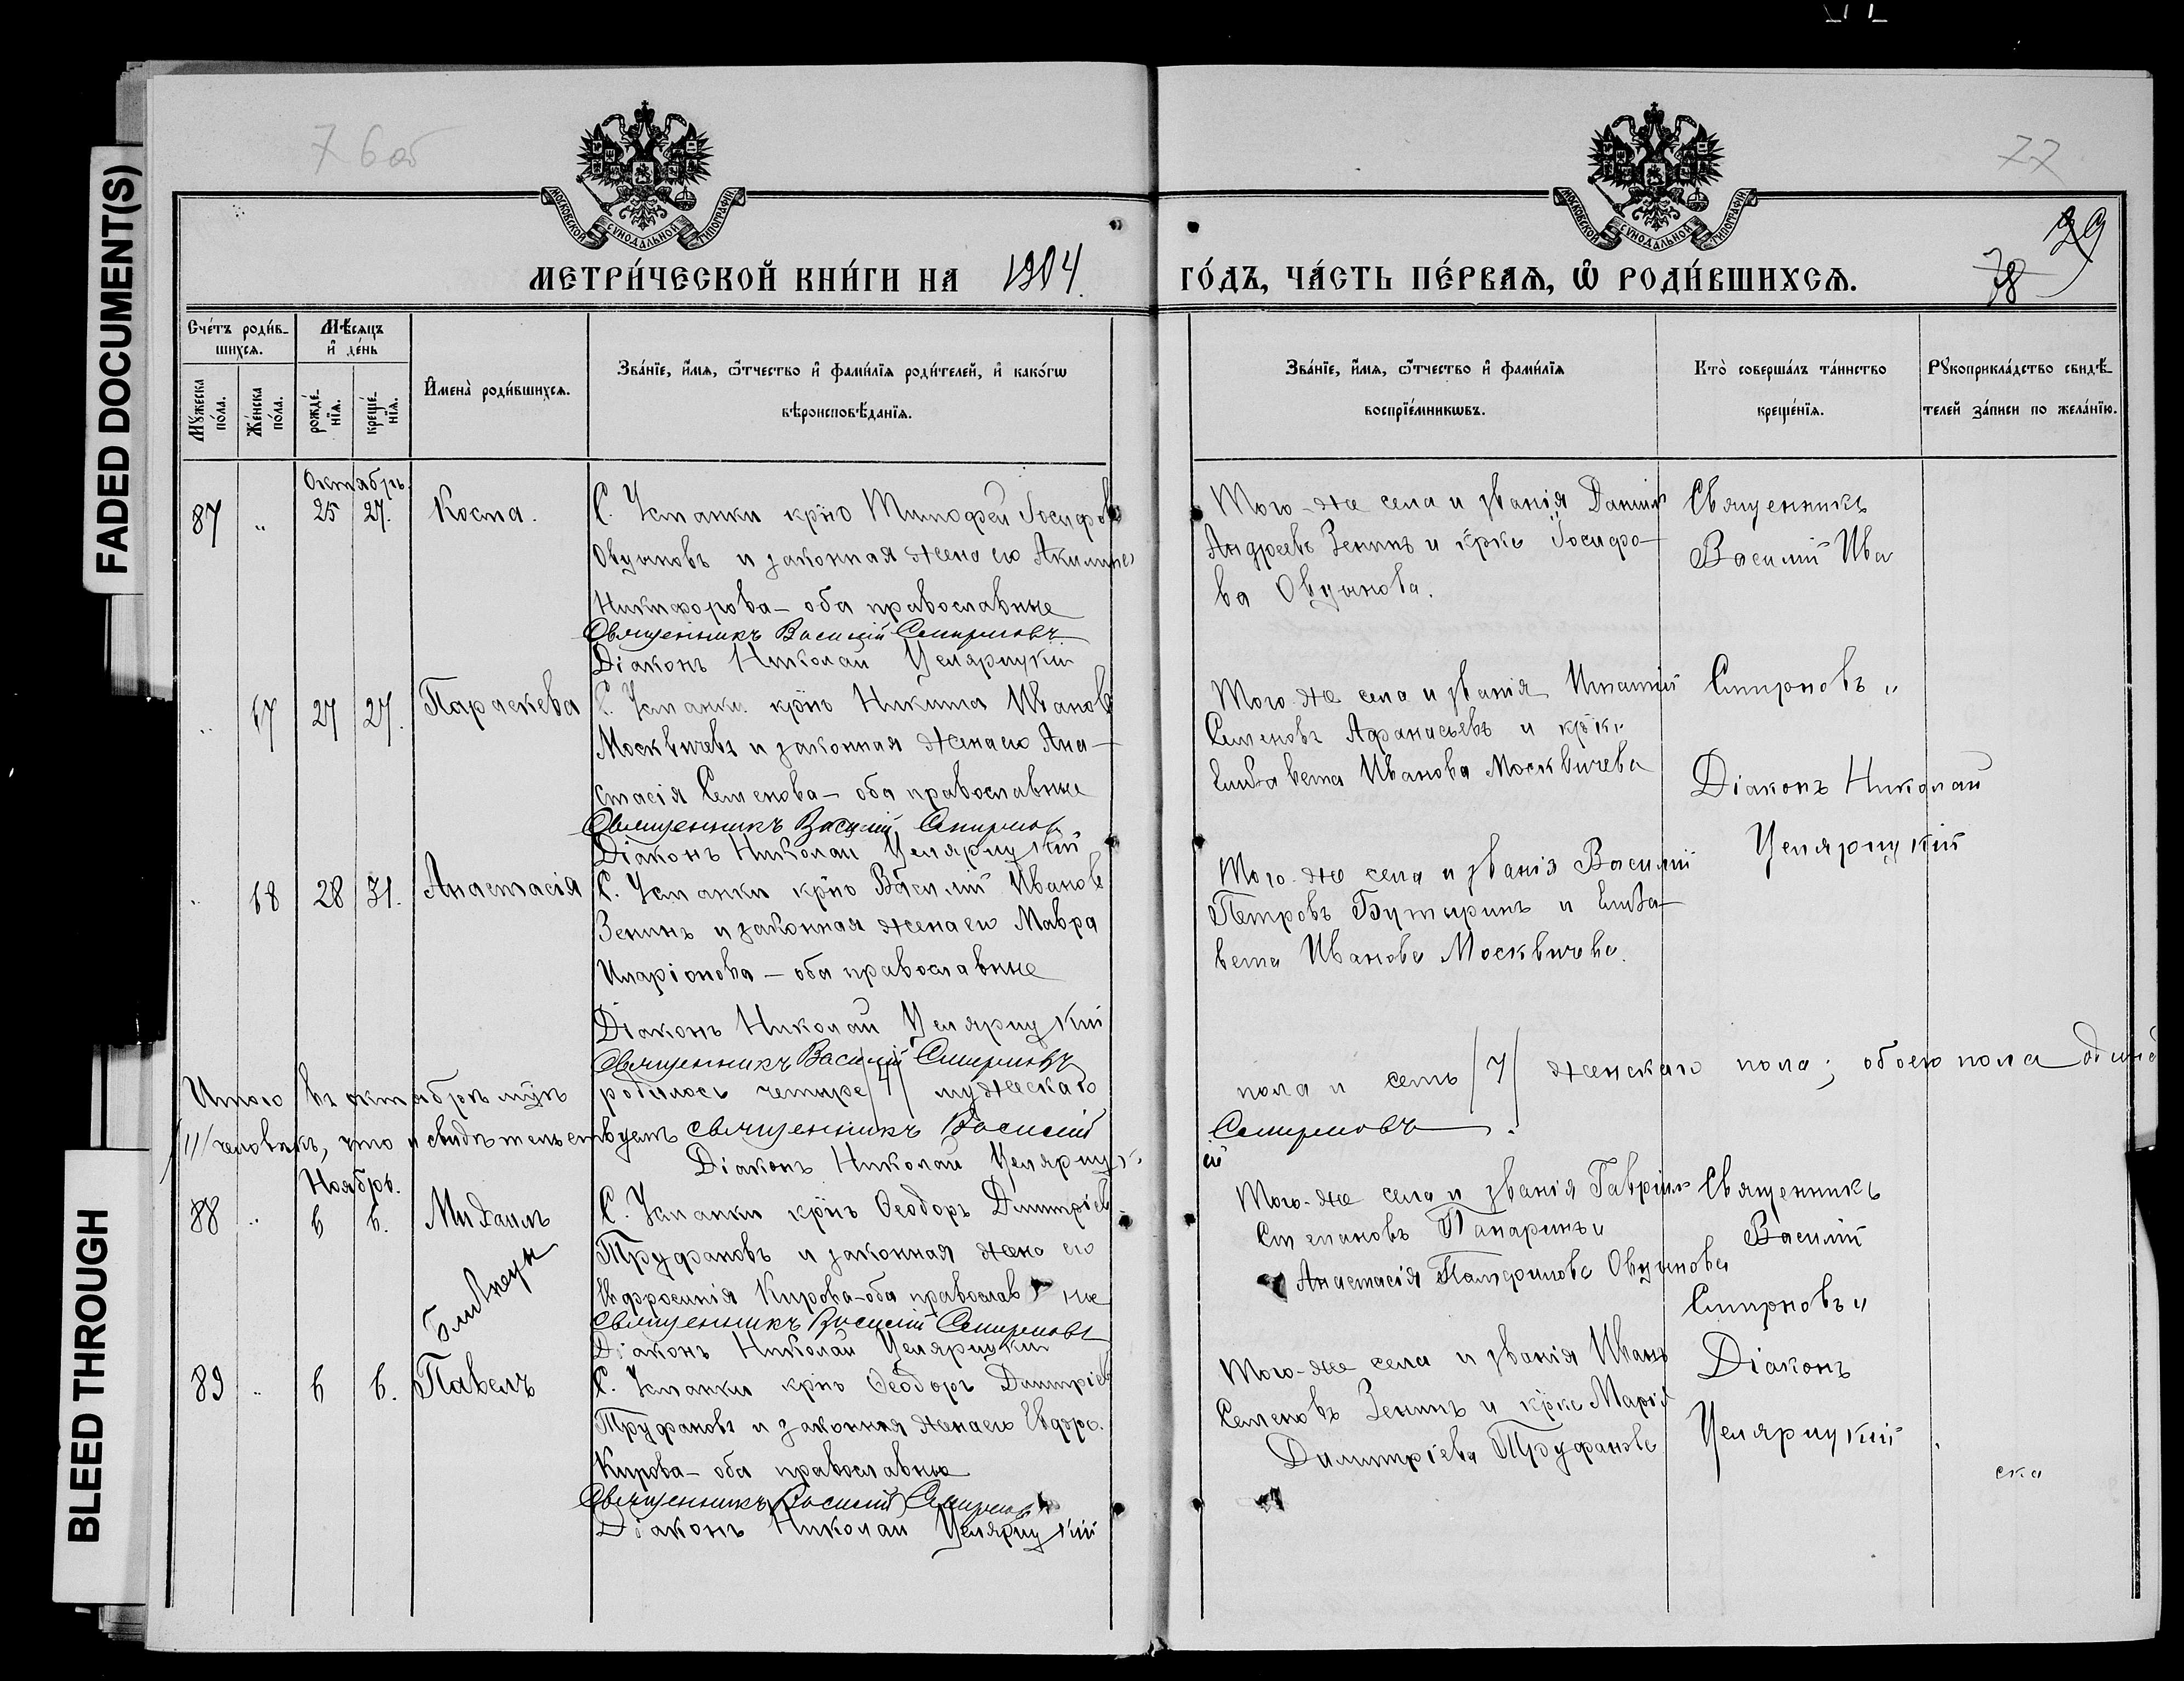 FADED DOCUMENT(S)
BLEED THROUGH
76 об
77
МОСКОВСКОЙ СѴНОДАЛЬНОЙ ТИПОГРАФІИ.
МОСКОВСКОЙ СѴНОДАЛЬНОЙ ТИПОГРАФІИ.
29
78
МЕТРИ́ЧЕСКОЙ КНИ́ГИ НА 1904
ГО́ДЪ, ЧА́СТЬ ПЕ́РВАѦ, Ѡ҆ РОДИ́ВШИХСѦ.
Сче́тъ роди́в-
шихсѧ.
Мѹ́жеска по́ла.
Же́нска по́ла.
Мѣ́сѧцъ
и҆ де́нь
рожде́-
нїѧ.
креще́-
нїѧ.
И҆мена̀ роди́вшихсѧ.
Зва́нїе, и҆́мѧ, ѻ҆́тчество и҆ фами́лїѧ роди́телей, и҆ како́гѡ
вѣроисповѣ́данїѧ.
Зва́нїе, и҆́мѧ, ѻ҆́тчество и҆ фами́лїѧ
воспрїе́мникѡвъ.
Кто̀ соверша́лъ та́инство
креще́нїѧ.
Рѹкоприкла́дство свидѣ́-
телей за́писи по жела́нїю.
Октябрь.
87 " 25 27. Косма.
С. Успанки крнъ Тимофей Іосифовъ
Овуыновъ и законная жена его Акилина
Никифорова - оба православные
Священникъ Василій Смирновъ
Діаконъ Николай Целярицкій
Того-же села и званія Даніилъ
Андреевъ Зенинъ и крка Іосифо-
ва Овуынова.
Священникъ
Василій Ива
" 67 27 27. Параскева
С. Успанки крнъ Никита Ивановъ
Москвичевъ и законная жена его Ана-
стасія Семенова - оба православные
Священникъ Василій Смирнов
Діаконъ Николай Целярицкій
Того-же села и званія Игнатій
Семеновъ Афанасьевъ и крки
Елизавета Иванова Москвичева
Смирновъ "
Діаконъ Николай
Целярицкій
" 68 28 31. Анастасія
С. Успанки крнъ Василій Ивановъ
Зенинъ и законная жена его Мавра
Иларіонова - оба православные
Діаконъ Николай Целярицкій
Священникъ Василій Смирновъ
Того-же села и званія Василій
Петровъ Бутыринъ и Елиза-
вета Иванова Москвичева.
Итого въ октябрѣ мцѣ родилось четыре /4/ мужескаго
пола и семь /7/ женскаго пола; обоего пола один
/11/ человѣкъ, что и свидѣтельствуемъ священникъ Василій
Смирновъ.
Діаконъ Николай Целярицк
ій
Ноябрь.
88 " 6 6. Михаилъ
С. Успанки крнъ Ѳеодоръ Димитріев
Труфановъ и законная жена его
Евфросинія Кирова - оба православные
Священникъ Василій Смирновъ
Діаконъ Николай Целярицкій
Близнецы
Того-же села и званія Гавріилъ
Степановъ Панаринъ и
Анастасія Памфилова Овуынова
Священникъ
Василій
Смирновъ "
89 " 6 6. Павелъ
С. Успанки крнъ Ѳеодоръ Димитріев
Труфановъ и законная жена его Евфро.
Кирова - оба православные
Священникъ Василій Смирновъ
Діаконъ Николай Целярицкій
Того-же села и званія Иванъ
Семеновъ Зенинъ и крка Марія
Димитріева Труфанова
Діаконъ
Целярицкій
ска